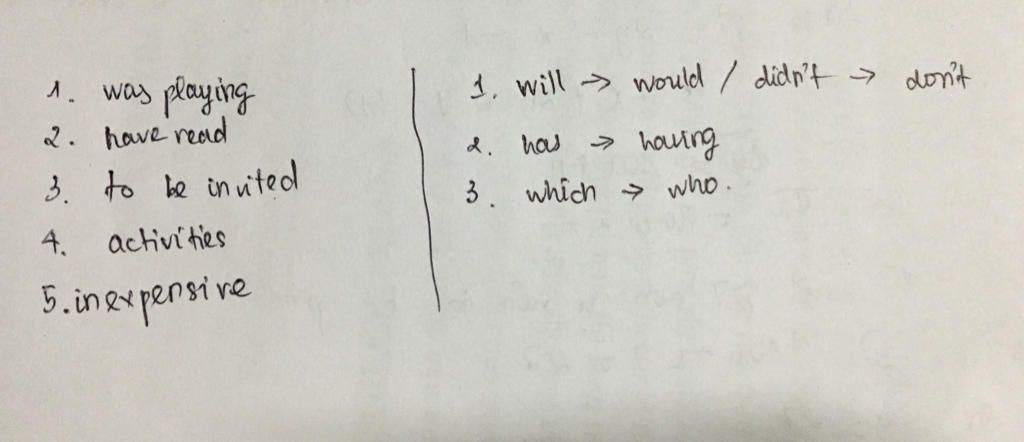 1. was playing
2. have read
3. to be invited
4. activities
5. inexpensive
1. will → would / didn't → don't
2. has → having
3. which → who.